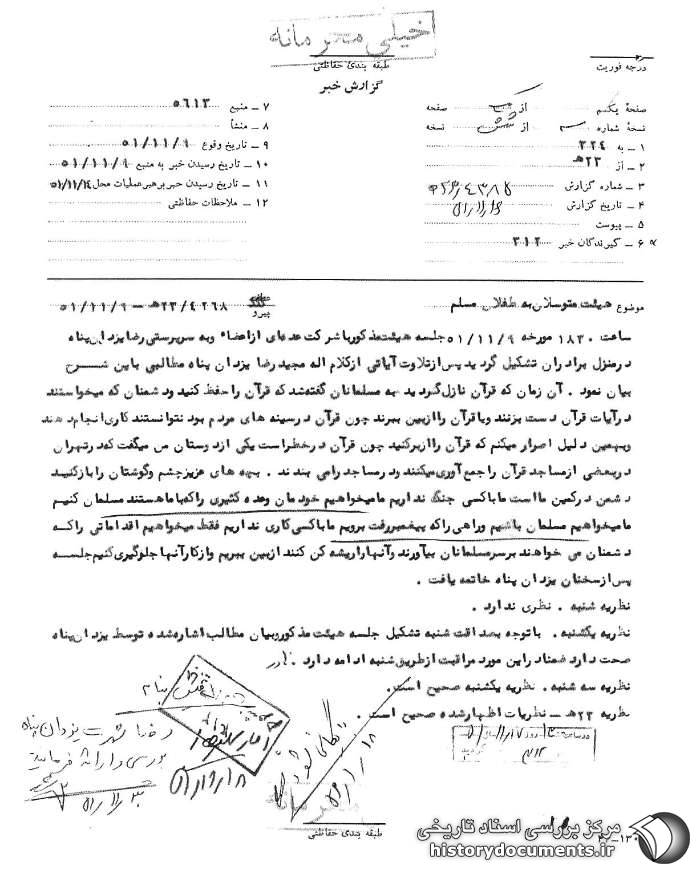 خیلی محرمانه
طبقه بندی حفاظتی
درجه فوریت
گزارش خبر
صفحهٔ یکم از یک صفحه
نسخهٔ شماره از شش نسخه
۱ ــ به ۳۲۴
۲ ــ از ۲۳هـ
۳ ــ شماره گزارش
۴ ــ تاریخ گزارش
۵ ــ پیوست
۶ ــ گیرندگان خبر ۳۱۲
۷ ــ منبع ۵۶۱۳
۸ ــ منشأ
۹ ــ تاریخ وقوع ۵۱/۱۱/۹
۱۰ ــ تاریخ رسیدن خبر به منبع ۵۱/۱۱/۹
۱۱ ــ تاریخ رسیدن خبر برهبر عملیات محل ۵۱/۱۱/۱۴
۱۲ ــ ملاحظات حفاظتی
موضوع هیئت متوسلان به طفلان مسلم
پیرو ۲۳/۴۲۶۸هـ ــ ۵۱/۱۱/۹
ساعت ۱۸۳۰ مورخه ۵۱/۱۱/۹ جلسه هیئت مذکور با شرکت عده‌ای از اعضاء و به سرپرستی رضا یزدان پناه
در منزل برادران تشکیل گردید پس از تلاوت آیاتی از کلام اله مجید رضا یزدان پناه مطالبی باین شـــرح
بیان نمود . آن زمان که قرآن نازل گردید به مسلمانان گفته شد که قرآن را حفظ کنید و دشمنان که میخواستند
در آیات قرآن دست بزنند و یا قرآن را از بین ببرند چون قرآن در سینه های مردم بود نتوانستند کاری انجام دهند
و بهمین دلیل اصرار میکنم که قرآن را از بر کنید چون قرآن در خطر است یکی از دوستان من میگفت که در تهران
در بعضی از مساجد قرآن را جمع آوری میکنند و در مساجد را می بندند . بچه های عزیز چشم و گوشتان را باز کنید
دشمن در کمین ما است ما با کسی جنگ نداریم ما میخواهیم خودمان و عده کثیری را که با ما هستند مسلمان کنیم
ما میخواهیم مسلمان باشیم و راهی را که پیغمبر رفت برویم ما با کسی کاری نداریم فقط میخواهیم اقداماتی را که
دشمنان می خواهند بر سر مسلمانان بیآورند و آنها را ریشه کن کنند از بین ببریم و از کار آنها جلوگیری کنیم جلسه
پس از سخنان یزدان پناه خاتمه یافت .
نظریه شنبه . نظری ندارد .
نظریه یکشنبه . با توجه بصداقت شنبه تشکیل جلسه هیئت مذکور و بیان مطالب اشاره شده توسط یزدان پناه
صحت دارد ضمناً در این مورد مراقبت از طریق شنبه ادامه دارد .
نظریه سه شنبه . نظریه یکشنبه صحیح است.
نظریه ۲۳هـ ــ نظریات اظهار شده صحیح است .
رضا شهرت یزدان پناه
بررسی و ارائه فرمایید
طبقه بندی حفاظتی
مرکز بررسی اسناد تاریخی
historydocuments.ir